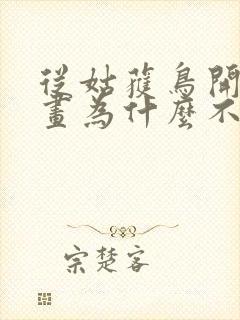 從姑蒦鳥開
畫為什麼不
宗楚客